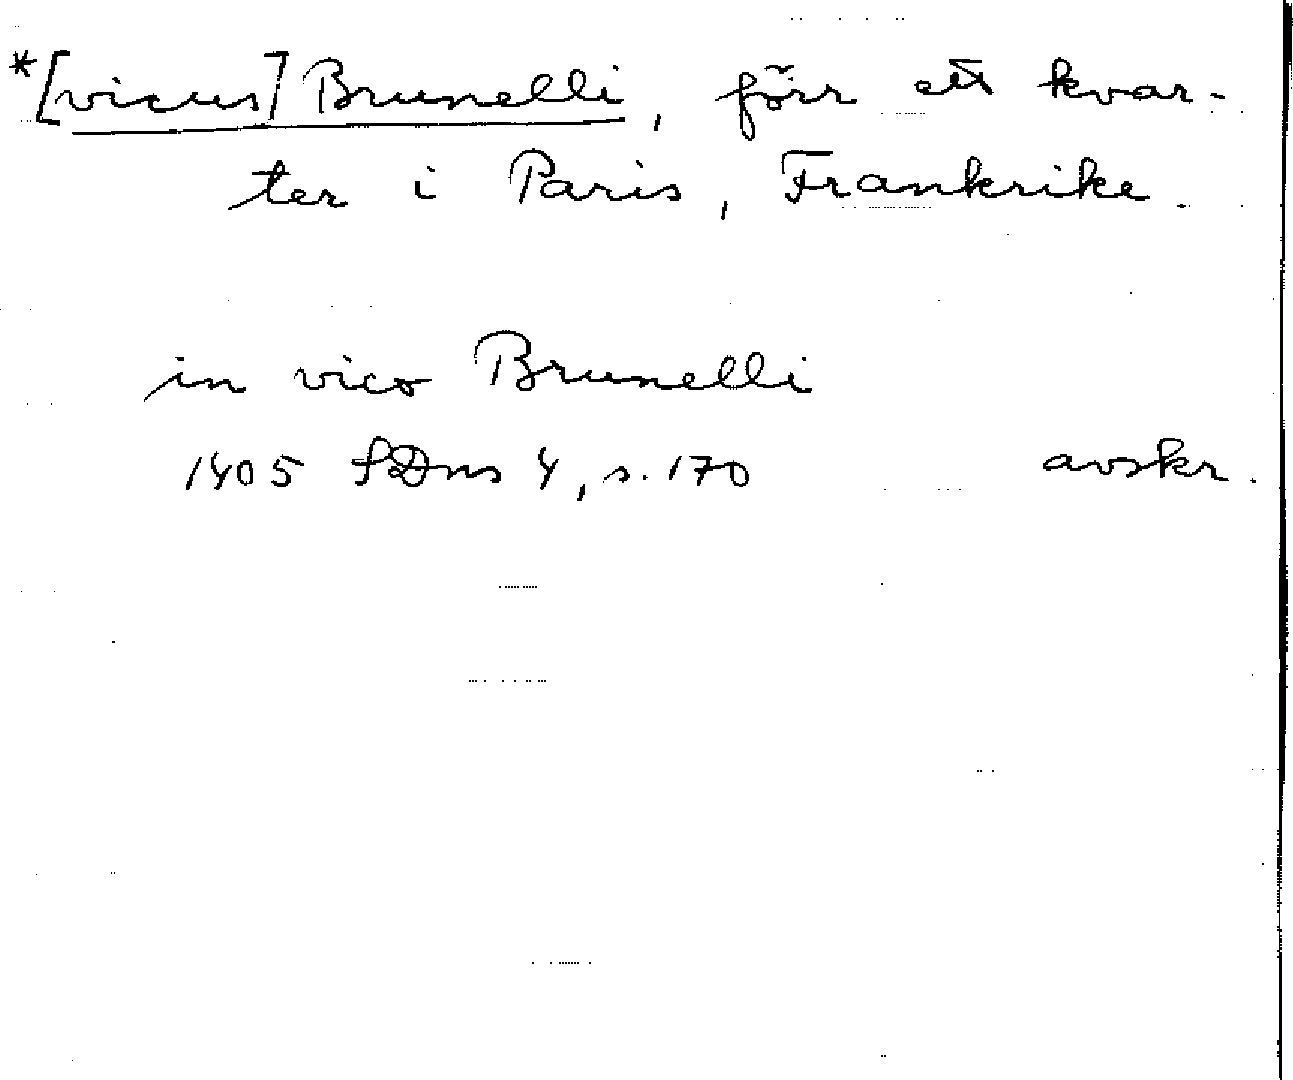 *[vicus] Brunelli, förr ett kvar-
ter i Paris, Frankrike.
in vico Brunelli
1405 SDns 4, s. 170 avskr.